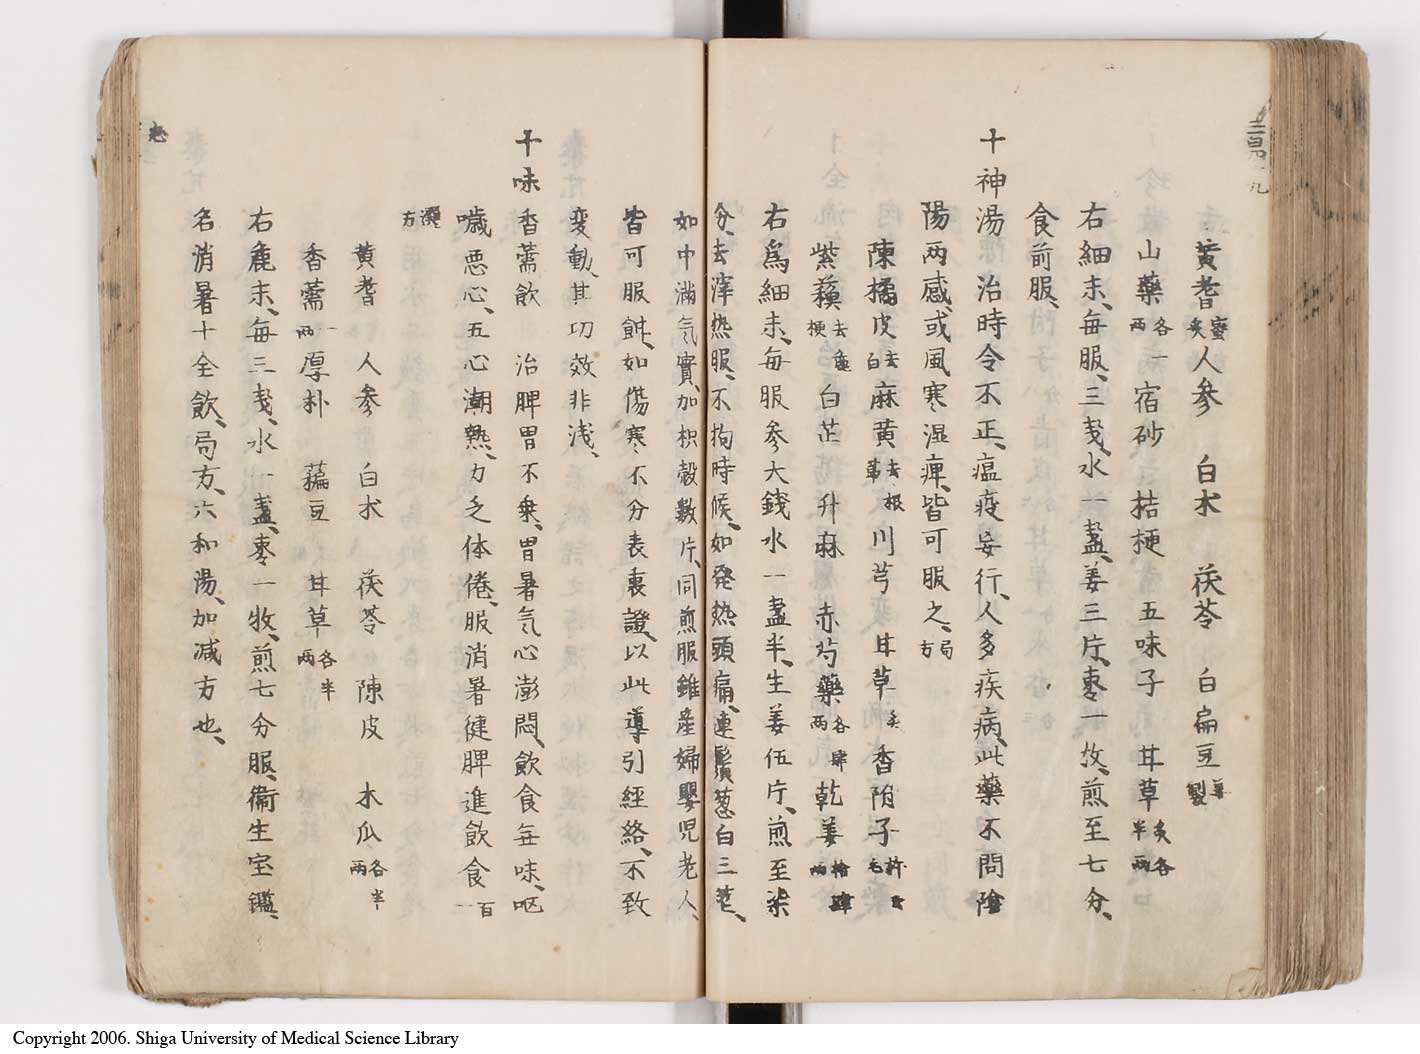 黄耆蜜炙人参 白朮 茯苓 白扁豆姜製
山藥各一两宿砂 桔梗 五味子 甘草炙各半两
右細末、每服、三戔、水一盞、姜三片、枣一攵、煎至七分、
食前服、
十神湯 治時令不正、瘟疫妄行、人多疾病、此藥不問陰
陽两感、或風寒湿痺、皆可服之、局方
陳橘皮去白麻黄去根節川芎 甘草炙香附子
紫蘓去麁梗白芷 升麻 赤芍藥各肆两乾姜
右爲細末、每服参大錢水一盞半、生姜伍片、煎至柒
分、去滓熱服、不拘時候、如発热頭痛、連鬚葱白三茎、
如中滿気實、加枳殼数片、同煎服錐産婦嬰児老人、
皆可服餌、如傷寒不分表裏證、以此導引経絡、不致
変動、其功效非浅、
十味香薷飲 治脾胃不乗、胃暑気心澎悶、飲食無味、呕
噦悪心、五心潮熱、力乏体倦、服消暑健脾進飲食百一
選方
黄耆 人参 白朮 茯苓 陳皮 木瓜各半两
香薷一两厚朴 藊豆 甘草各半两
右麁末、每三戔、水一盞、枣一牧、煎七分服、衞生宝鑑、
名消暑十全飲、局方、六和湯、加减方也、
Copyright 2006. Shiga University of Medical Science Library